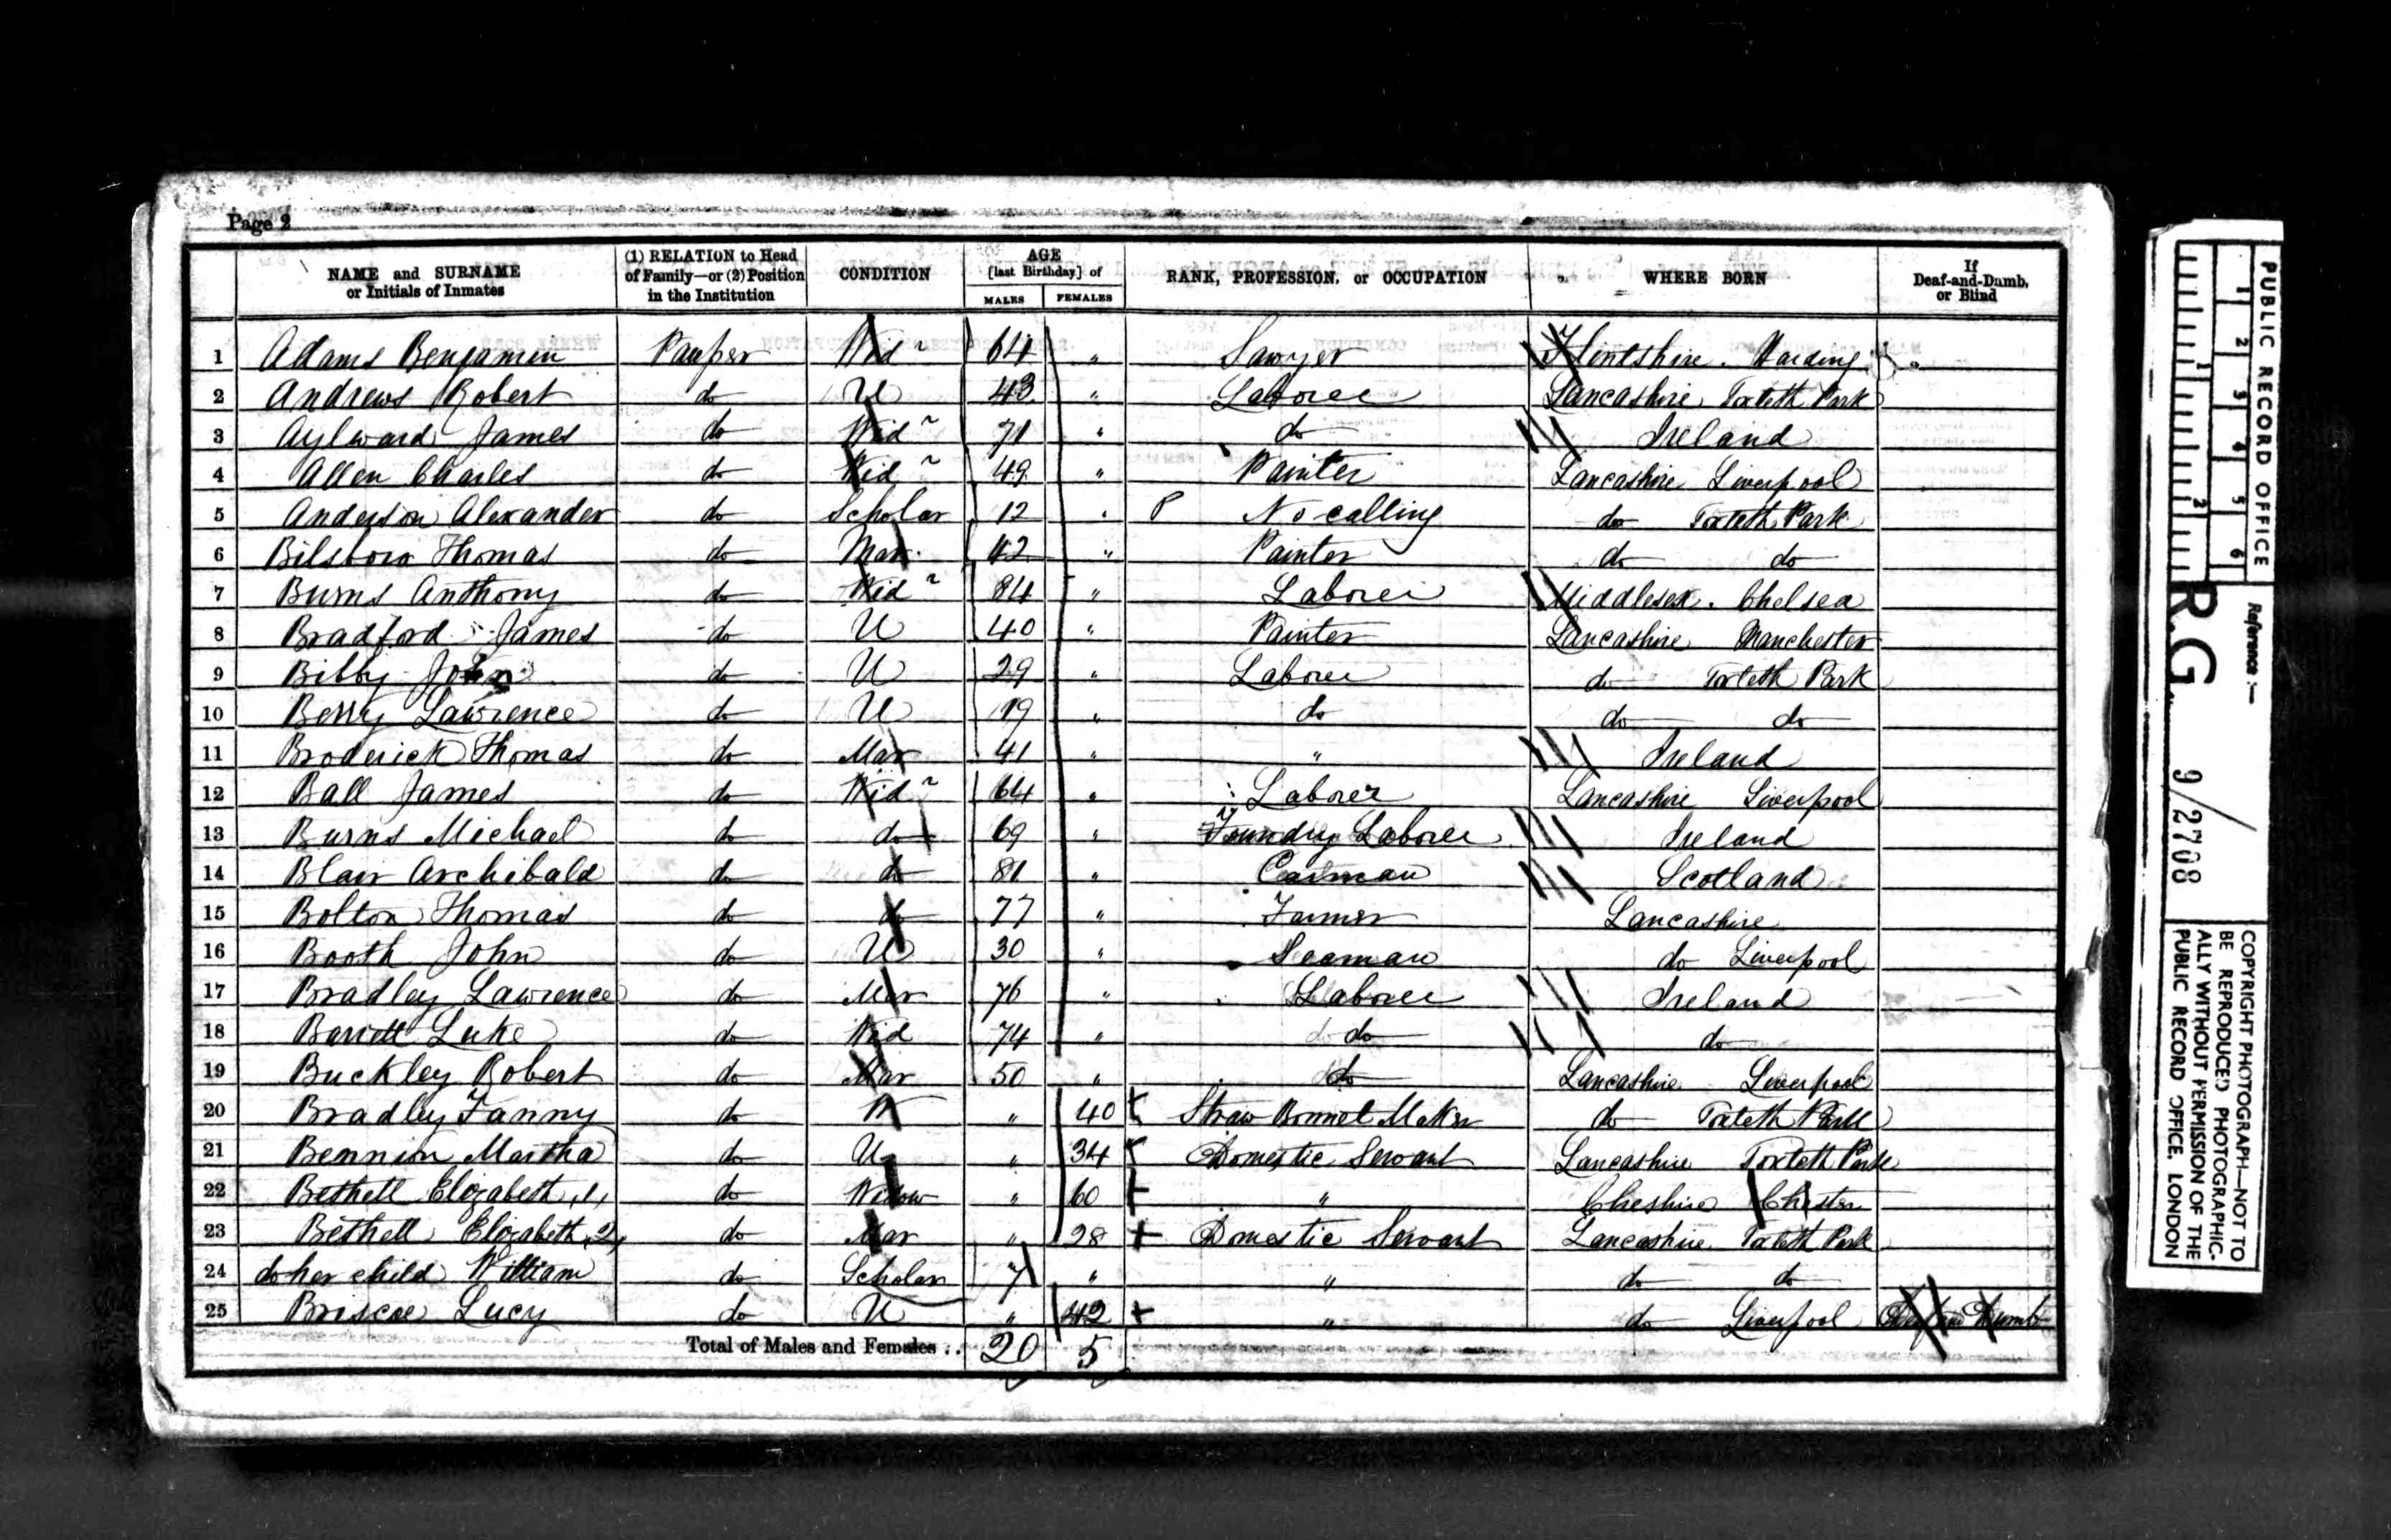 Page 2
NAME and SURNAME or Initials of Inmates | (1) RELATION to Head of Family—or (2) Position in the Institution | CONDITION | AGE [last Birthday] of MALES | FEMALES | RANK, PROFESSION, or OCCUPATION | WHERE BORN | If Deaf-and-Dumb, or Blind
1 Adams Benjamin Pauper Widr 64 " Sawyer Flintshire. Harding
2 Andrews Robert do U 43 " Laborer Lancashire Toxteth Park
3 Aylward James do Widr 71 " do Ireland
4 Allen Charles do Widr 49 " Painter Lancashire Liverpool
5 Anderson Alexander do Scholar 12 " No calling do Toxteth Park
6 Bilsboro Thomas do Mar. 42 " Painter do do
7 Burns Anthony do Widr 84 " Laborer Middlesex. Chelsea
8 Bradford James do U 40 " Painter Lancashire Manchester
9 Bibby John do U 29 " Laborer do Toxteth Park
10 Berry Lawrence do U 19 " do do do
11 Broderick Thomas do Mar 41 " " Ireland
12 Ball James do Widr 64 " Laborer Lancashire Liverpool
13 Burns Michael do do 69 " Foundry Laborer Ireland
14 Blair Archibald do do 81 " Carman Scotland
15 Bolton Thomas do do 77 " Farmer Lancashire
16 Booth John do U 30 " Seaman do Liverpool
17 Bradley Lawrence do Mar 76 " Laborer Ireland
18 Barrett Luke do Wid 74 " do do
19 Buckley Robert do Mar 50 " do Lancashire Liverpool
20 Bradley Fanny do W " 40 Straw Bonnet Maker do Toxteth Park
21 Bennion Martha do U " 34 Domestic Servant Lancashire Toxteth Park
22 Bethell Elizabeth, 1, do Widow " 60 " Cheshire Chester
23 Bethell Elizabeth, 2, do Mar " 28 Domestic Servant Lancashire Toxteth Park
24 do her child William do Scholar 7 " " do do
25 Briscoe Lucy do U " 42 " do Liverpool Deaf and Dumb
Total of Males and Females .. 20 5
PUBLIC RECORD OFFICE
1 2 3 4 5 6
1 2
Reference :—
R.G. 9/2708
COPYRIGHT PHOTOGRAPH—NOT TO
BE REPRODUCED PHOTOGRAPHIC-
ALLY WITHOUT PERMISSION OF THE
PUBLIC RECORD OFFICE, LONDON